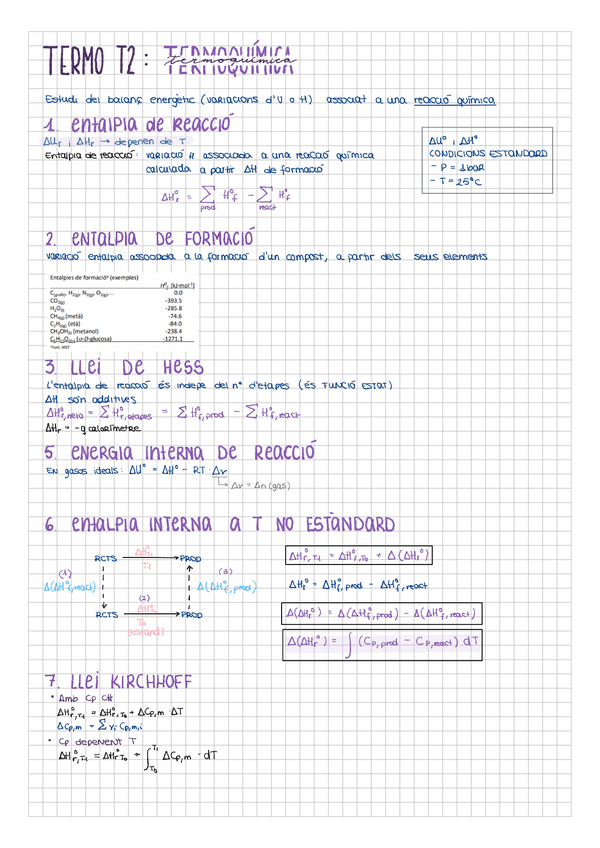 TERMO T2: TERMOQUÍMICA
termoquímica
Estudi del balanç energètic (variacions d'U o H) associat a una reacció química
1. entalpia de reacció
ΔUr i ΔHr → depenen de T
Entalpia de reacció: variació H associada a una reacció química
calculada a partir ΔH de formació
ΔHr° = Σprod Hf° - Σreact Hf°
ΔU° i ΔH°
CONDICIONS ESTANDARD
- P = 1bar
- T = 25°C
2. entalpia de formació
variació entalpia associada a la formació d'un compost, a partir dels seus elements
Entalpies de formacióª (exemples)
H°f [kJ·mol⁻¹]
C(grafit), H2(g), N2(g), O2(g),... 0.0
CO2(g) -393.5
H2O(l) -285.8
CH4(g) (metà) -74.6
C2H6(g) (età) -84.0
CH3OH(l) (metanol) -238.4
C6H12O6(s) (α-D-glucosa) -1271.1
3. Llei de Hess
L'entalpia de reacció és indepe del nº d'etapes (és FUNCIÓ ESTAT)
ΔH són additives
ΔH°r,neta = ΣH°r,etapes = ΣH°f,prod - ΣH°f,react
ΔHr = -q calorímetre
5. energia interna de reacció
En gasos ideals: ΔU° = ΔH° - RT·Δν
↳ Δν = Δn (gas)
6. entalpia interna a T no estàndard
RCTS ΔH°T1 → PROD
T1
(1) (3)
Δ(ΔH°f,react) Δ(ΔH°f,prod)
(2)
RCTS ΔH°T0 → PROD
T0
(estand)
ΔH°r,T1 = ΔH°r,T0 + Δ(ΔHr°)
ΔHr° = ΔH°f,prod - ΔH°f,react
Δ(ΔHr°) = Δ(ΔH°f,prod) - Δ(ΔH°f,react)
Δ(ΔHr°) = ∫ (Cp,prod - Cp,react) dT
7. Llei Kirchhoff
• Amb Cp ct
ΔH°r,T1 = ΔH°r,T0 + ΔCp,m · ΔT
ΔCp,m = Σ νi · Cp,m,i
• Cp depenent T
ΔH°r,T1 = ΔH°r,T0 + ∫T0 T1 ΔCp,m · dT